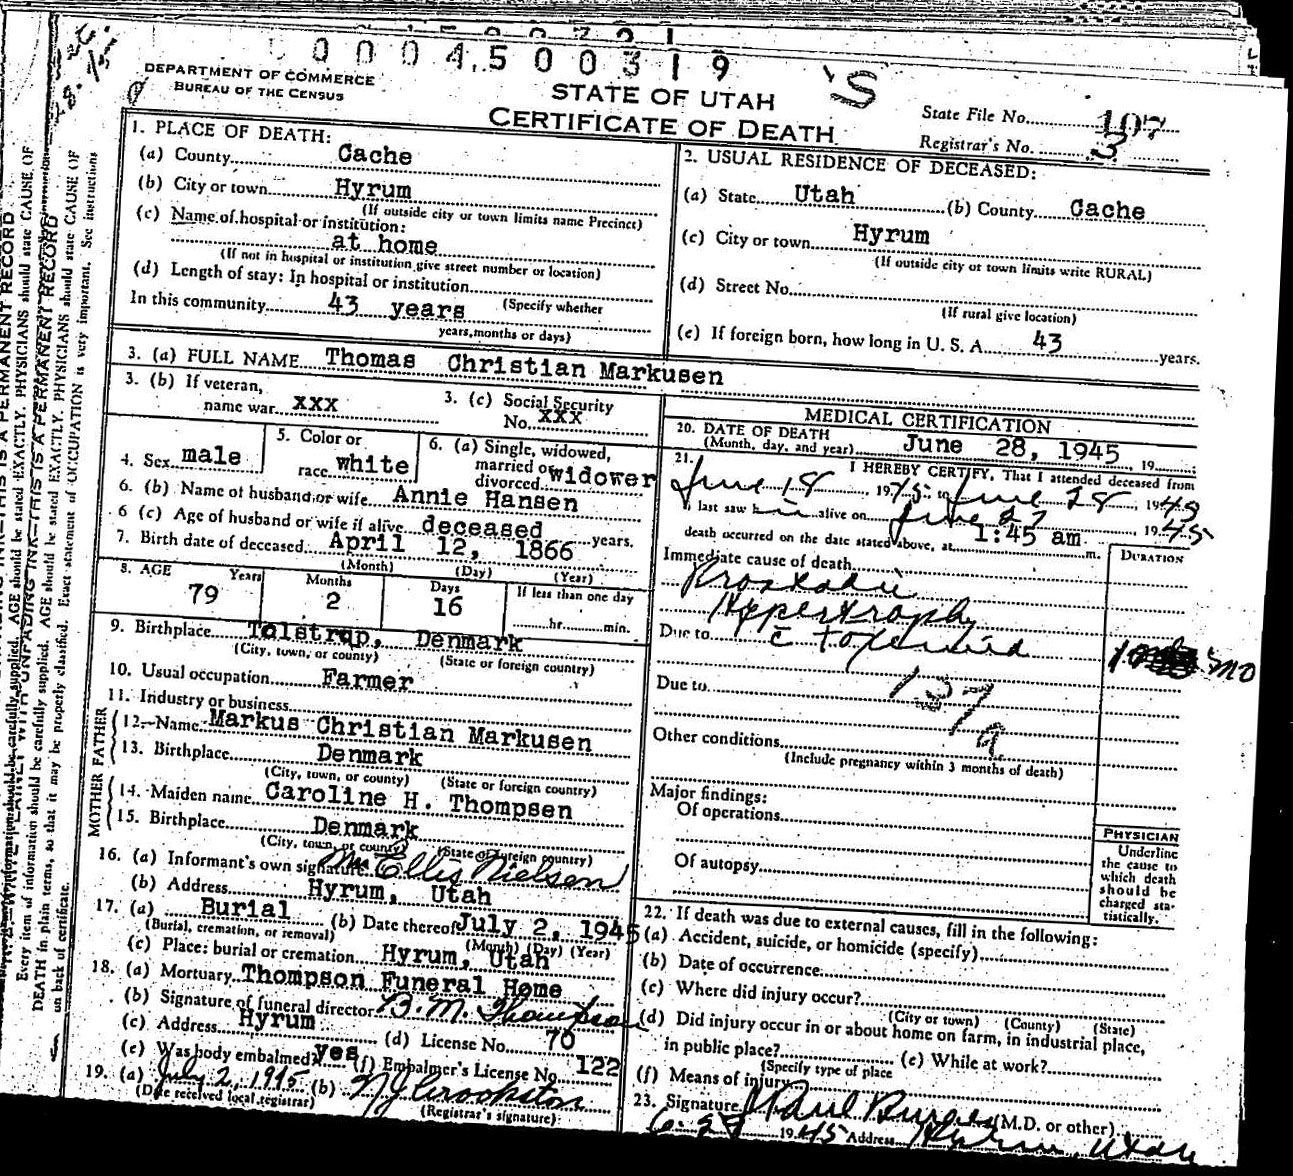 0004500319
S
DEPARTMENT OF COMMERCE
BUREAU OF THE CENSUS
STATE OF UTAH
CERTIFICATE OF DEATH
State File No. 107
Registrar's No. 3
1. PLACE OF DEATH:
(a) County Cache
(b) City or town Hyrum
(If outside city or town limits name Precinct)
(c) Name of hospital or institution:
at home
(If not in hospital or institution give street number or location)
(d) Length of stay: In hospital or institution
(Specify whether
In this community 43 years
years, months or days)
2. USUAL RESIDENCE OF DECEASED:
(a) State Utah (b) County Cache
(c) City or town Hyrum
(If outside city or town limits write RURAL)
(d) Street No.
(If rural give location)
(e) If foreign born, how long in U. S. A. 43 years.
3. (a) FULL NAME Thomas Christian Markusen
3. (b) If veteran,
name war xxx
3. (c) Social Security
No. xxx
4. Sex male
5. Color or
race white
6. (a) Single, widowed,
married or
divorced widower
6. (b) Name of husband or wife Annie Hansen
6 (c) Age of husband or wife if alive deceased years.
7. Birth date of deceased April 12, 1866
(Month) (Day) (Year)
8. AGE Years Months Days If less than one day
79 2 16 hr. min.
9. Birthplace Tolstrup, Denmark
(City, town, or county) (State or foreign country)
10. Usual occupation Farmer
11. Industry or business
FATHER
12. Name Markus Christian Markusen
13. Birthplace Denmark
(City, town, or county) (State or foreign country)
MOTHER
14. Maiden name Caroline H. Thompsen
15. Birthplace Denmark
(City, town, or county) (State or foreign country)
16. (a) Informant's own signature Mrs Ellis Nielsen
(b) Address Hyrum, Utah
17. (a) Burial (b) Date thereof July 2, 1945
(Burial, cremation, or removal) (Month) (Day) (Year)
(c) Place: burial or cremation Hyrum, Utah
18. (a) Mortuary Thompson Funeral Home
(b) Signature of funeral director B. M. Thompson
(c) Address Hyrum (d) License No. 70
(e) Was body embalmed? yes (f) Embalmer's License No. 122
19. (a) July 2, 1945 (b) N J Crookston
(Date received local registrar) (Registrar's signature)
MEDICAL CERTIFICATION
20. DATE OF DEATH
(Month, day, and year) June 28, 1945, 19
21. I HEREBY CERTIFY, That I attended deceased from
June 18, 1945 to June 28, 1945
I last saw him alive on June 27 1945
death occurred on the date stated above, at 1:45 am m.
DURATION
Immediate cause of death
Prostatic
Hypertrophy
Due to c toxemia
mo
Due to 137
a
Other conditions
(Include pregnancy within 3 months of death)
Major findings:
Of operations
Of autopsy
PHYSICIAN
Underline
the cause to
which death
should be
charged sta-
tistically.
22. If death was due to external causes, fill in the following:
(a) Accident, suicide, or homicide (specify)
(b) Date of occurrence
(c) Where did injury occur?
(City or town) (County) (State)
(d) Did injury occur in or about home on farm, in industrial place,
in public place? (e) While at work?
(Specify type of place
(f) Means of injury
23. Signature Paul Burgess (M.D. or other)
6-28 1945 Address Hyrum, Utah
Every item of information should be carefully supplied. AGE should be stated EXACTLY. PHYSICIANS should state CAUSE OF
DEATH in plain terms, so that it may be properly classified. Exact statement of OCCUPATION is very important. See instructions
on back of certificate.